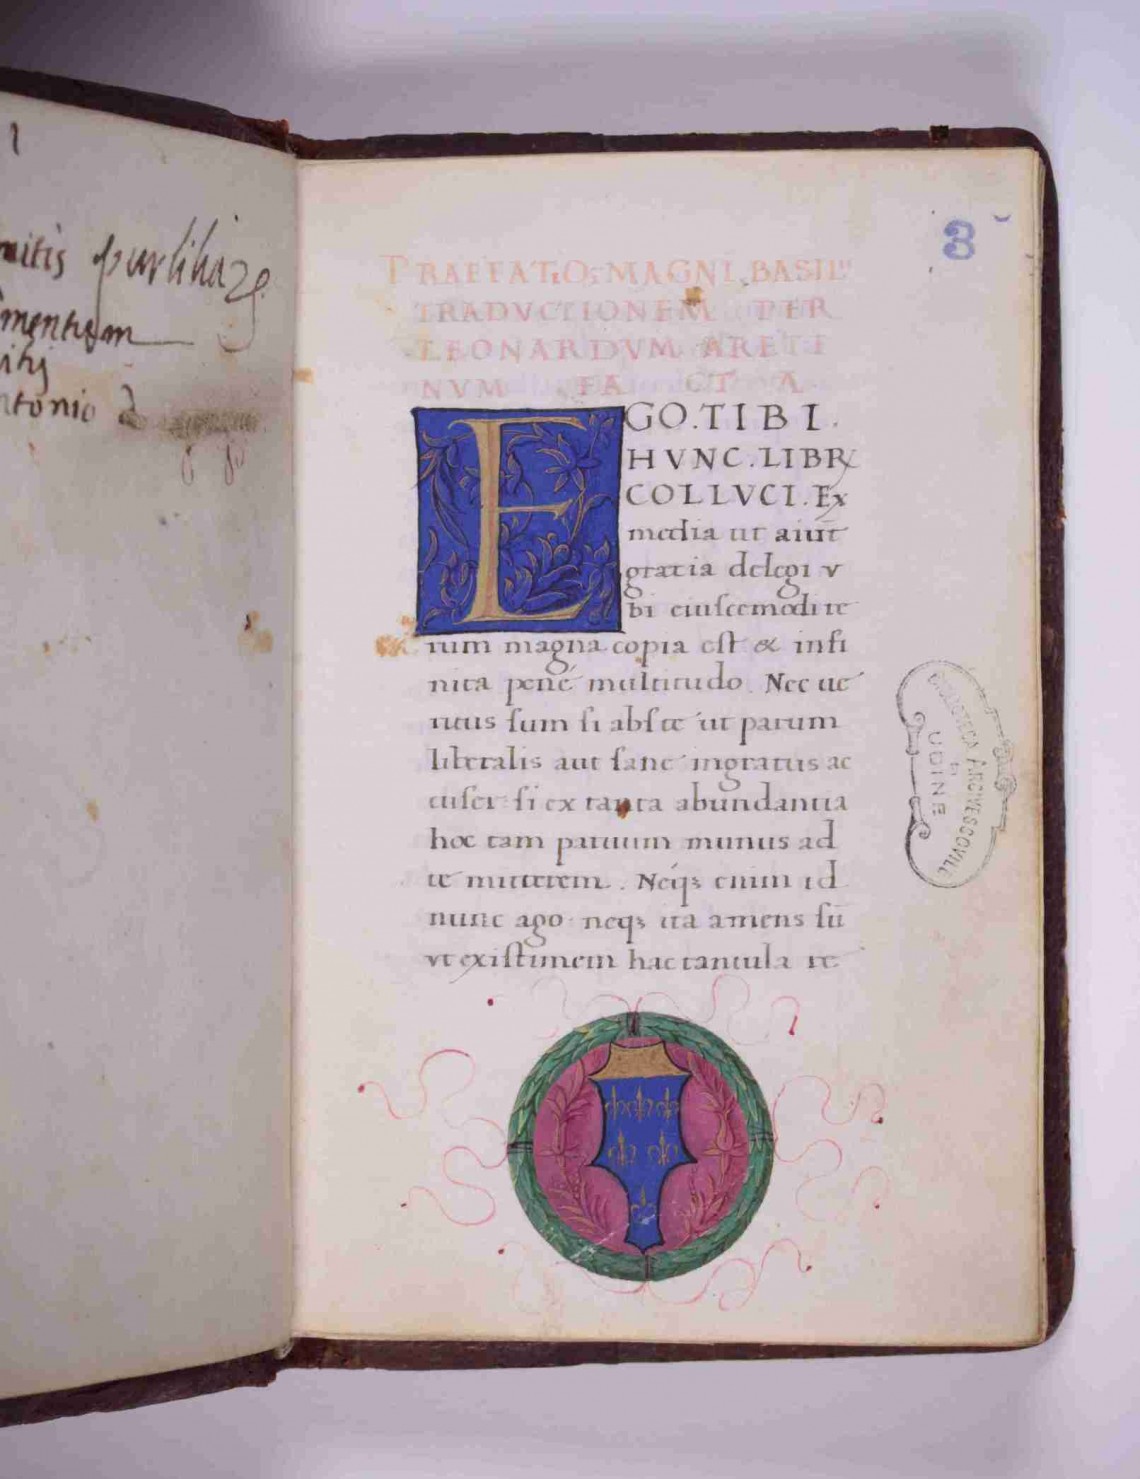 1
mitis purliliaz
mentum
itis
ntonio d
8
PRAEFATIO MAGNI BASILII
TRADVCTIONEM PER
LEONARDVM ARETI
NVM FACTA
EGO.TIBI.
HVNC.LIBRŨ
COLLVCI.EX
media ut aiũt
gratia delegi v
bi eiuscemodi re
rum magna copia est & infi
nita pené multitudo. Nec ue
ritus sum si abs te ut parum
liberalis aut sane ingratus ac
cuser si ex tanta abundantia
hoc tam paruum munus ad
te mitterem. Neqꝫ enim id
nunc ago neqꝫ ita amens sũ
vt existimem hac tantula re
BIBLIOTECA ARCIVESCOVILE
DI
UDINE